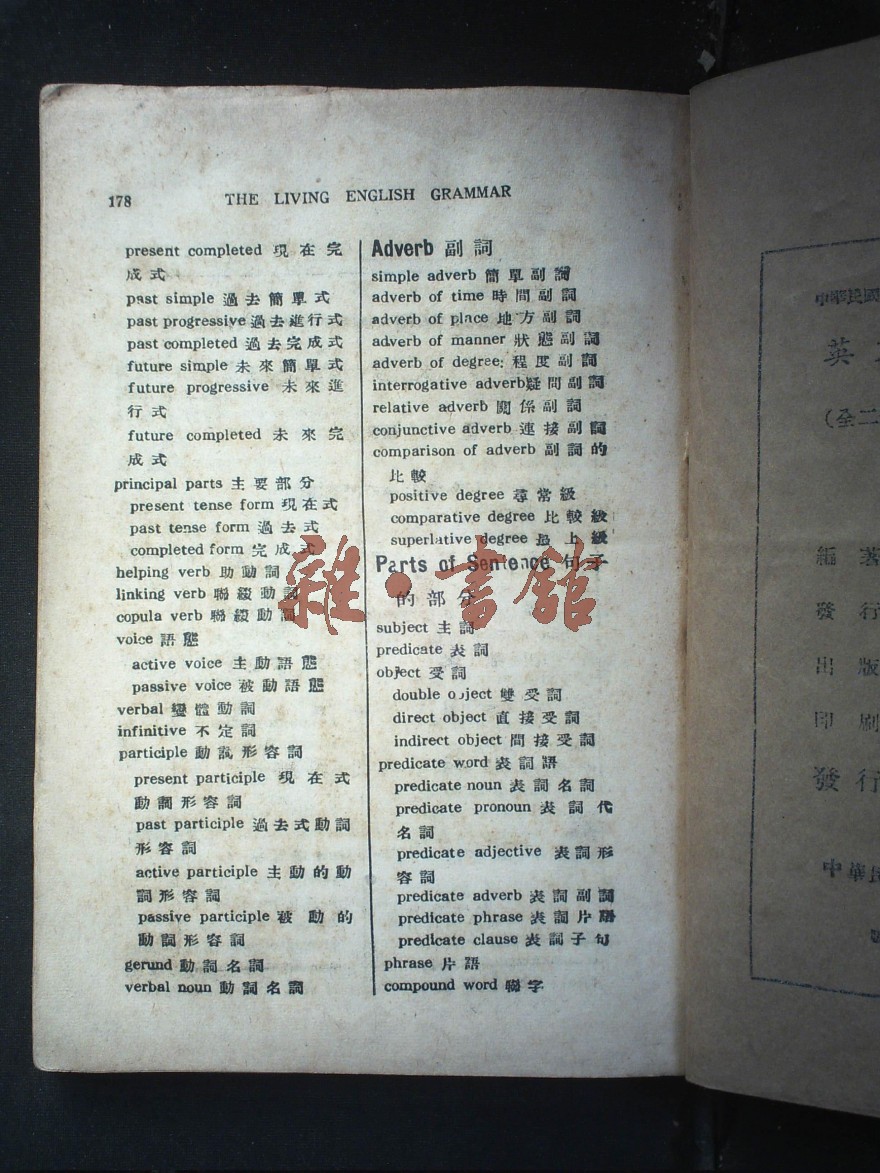 178 THE LIVING ENGLISH GRAMMAR
present completed 現在完
成式
past simple 過去簡單式
past progressive 過去進行式
past completed 過去完成式
future simple 未來簡單式
future progressive 未來進
行式
future completed 未來完
成式
principal parts 主要部分
present tense form 現在式
past tense form 過去式
completed form 完成式
helping verb 助動詞
linking verb 聯綴動詞
copula verb 聯綴動詞
voice 語態
active voice 主動語態
passive voice 被動語態
verbal 變體動詞
infinitive 不定詞
participle 動詞形容詞
present participle 現在式
動詞形容詞
past participle 過去式動詞
形容詞
active participle 主動的動
詞形容詞
passive participle 被動的
動詞形容詞
gerund 動詞名詞
verbal noun 動詞名詞
Adverb 副詞
simple adverb 簡單副詞
adverb of time 時間副詞
adverb of place 地方副詞
adverb of manner 狀態副詞
adverb of degree: 程度副詞
interrogative adverb 疑問副詞
relative adverb 關係副詞
conjunctive adverb 連接副詞
comparison of adverb 副詞的
比較
positive degree 尋常級
comparative degree 比較級
superlative degree 最上級
Parts of Sentence 句子
的部分
subject 主詞
predicate 表詞
object 受詞
double object 雙受詞
direct object 直接受詞
indirect object 間接受詞
predicate word 表詞語
predicate noun 表詞名詞
predicate pronoun 表詞代
名詞
predicate adjective 表詞形
容詞
predicate adverb 表詞副詞
predicate phrase 表詞片語
predicate clause 表詞子句
phrase 片語
compound word 聯字
雜·書館
中華民國
英
(全二
編著
發行
出版
印刷
發行
中華民